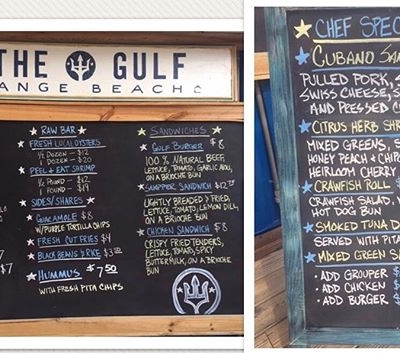 THE GULF
ANGE BEACH
RAW BAR
FRESH LOCAL OYSTERS
½ DOZEN - $12
1 DOZEN - $20
PEEL & EAT SHRIMP
½ POUND - $12
1 POUND - $19
SIDES/SHARES
GUACAMOLE $8
W/PURPLE TORTILLA CHIPS
FRESH CUT FRIES $4
BLACK BEANS & RICE $3.50
HUMMUS $7.50
WITH FRESH PITA CHIPS
SANDWICHES
GULF BURGER $8
100% NATURAL BEEF,
LETTUCE, TOMATO, GARLIC AIOLI,
ON A BRIOCHE BUN
SANDWICH $12
LIGHTLY BREADED & FRIED,
LETTUCE, TOMATO, LEMON DILL,
ON A BRIOCHE BUN
CHICKEN SANDWICH $8
CRISPY FRIED TENDERS,
LETTUCE, TOMATO, SPICY
BUTTERMILK, ON A BRIOCHE
BUN
$7
CHEF SPEC
CUBANO SAN
PULLED PORK, S
SWISS CHEESE, S
AND PRESSED C
CITRUS HERB SHR
MIXED GREENS, S
HONEY PEACH & CHIPO
HEIRLOOM CHERRY
CRAWFISH ROLL $
CRAWFISH SALAD,
HOT DOG BUN
SMOKED TUNA D
SERVED WITH PITA
MIXED GREEN SA
• ADD GROUPER $
• ADD CHICKEN $
• ADD BURGER $